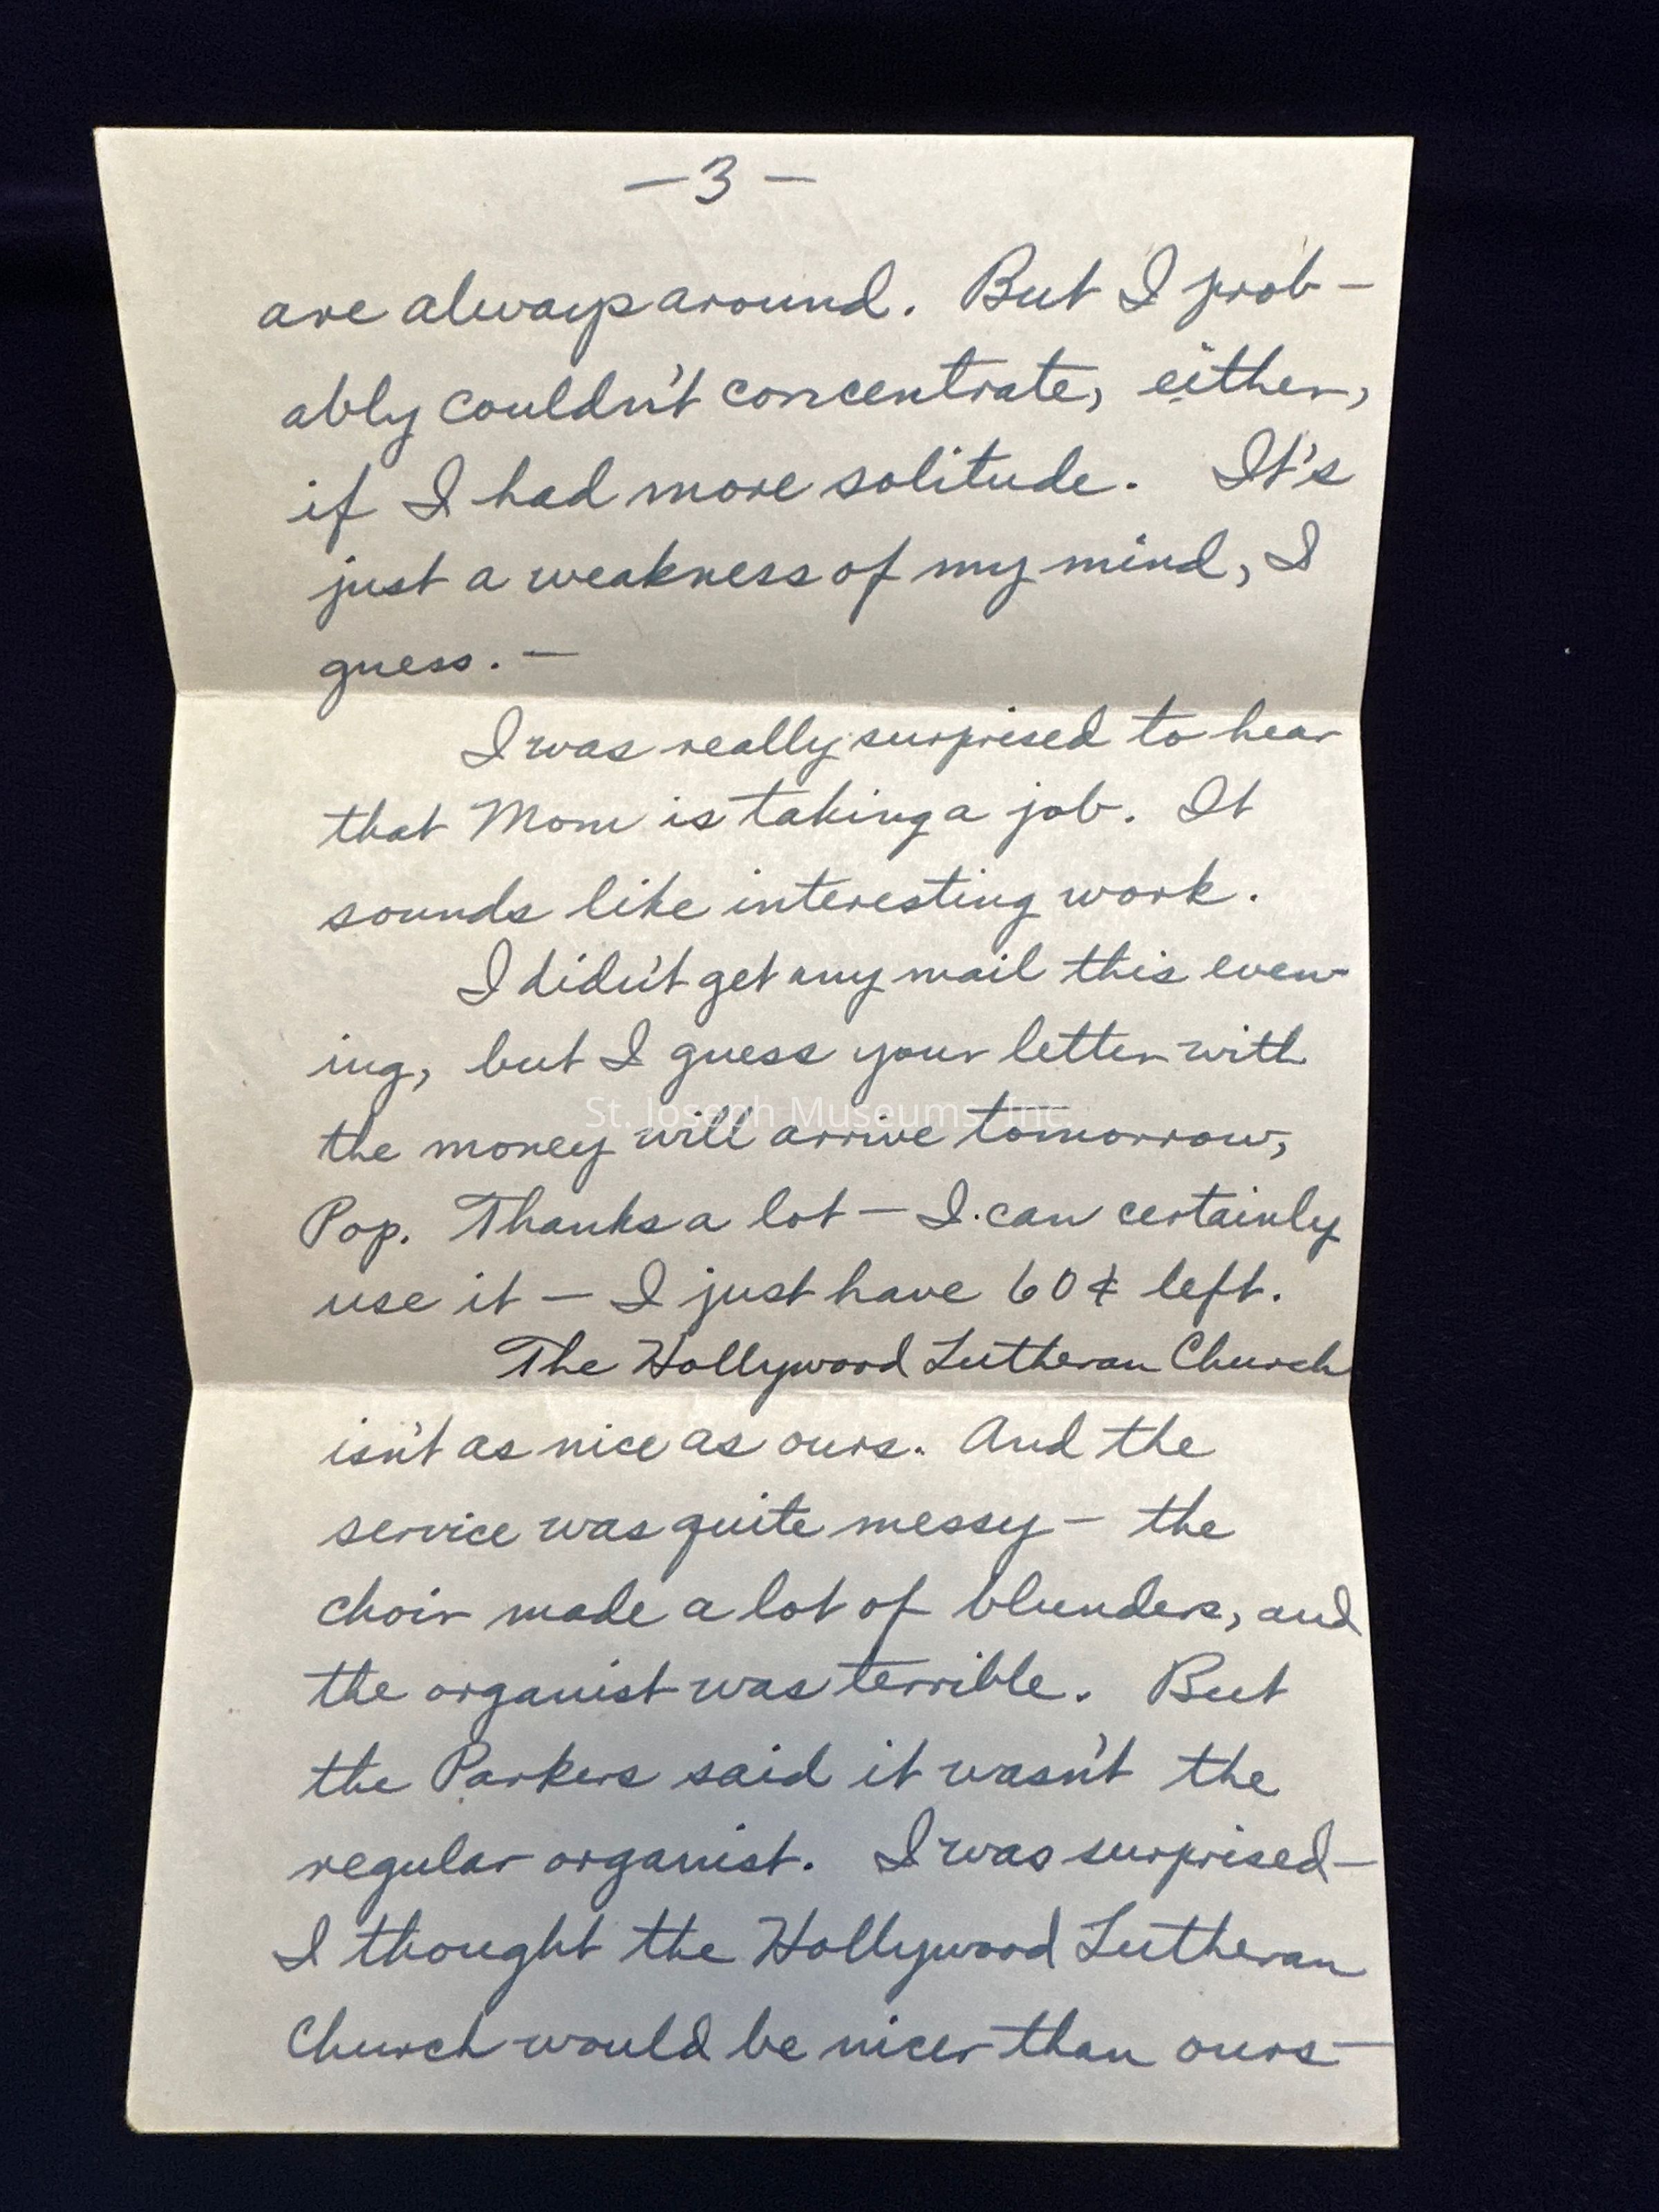 — 3 —
are always around. But I prob-
ably couldn't concentrate, either,
if I had more solitude. It's
just a weakness of my mind, I
guess. —
I was really surprised to hear
that Mom is taking a job. It
sounds like interesting work.
I didn't get any mail this even-
ing, but I guess your letter with
St. Joseph Museums, Inc.
the money will arrive tomorrow,
Pop. Thanks a lot — I can certainly
use it — I just have 60¢ left.
The Hollywood Lutheran Church
isn't as nice as ours. And the
service was quite messy — the
choir made a lot of blunders, and
the organist was terrible. But
the Parkers said it wasn't the
regular organist. I was surprised —
I thought the Hollywood Lutheran
Church would be nicer than ours —